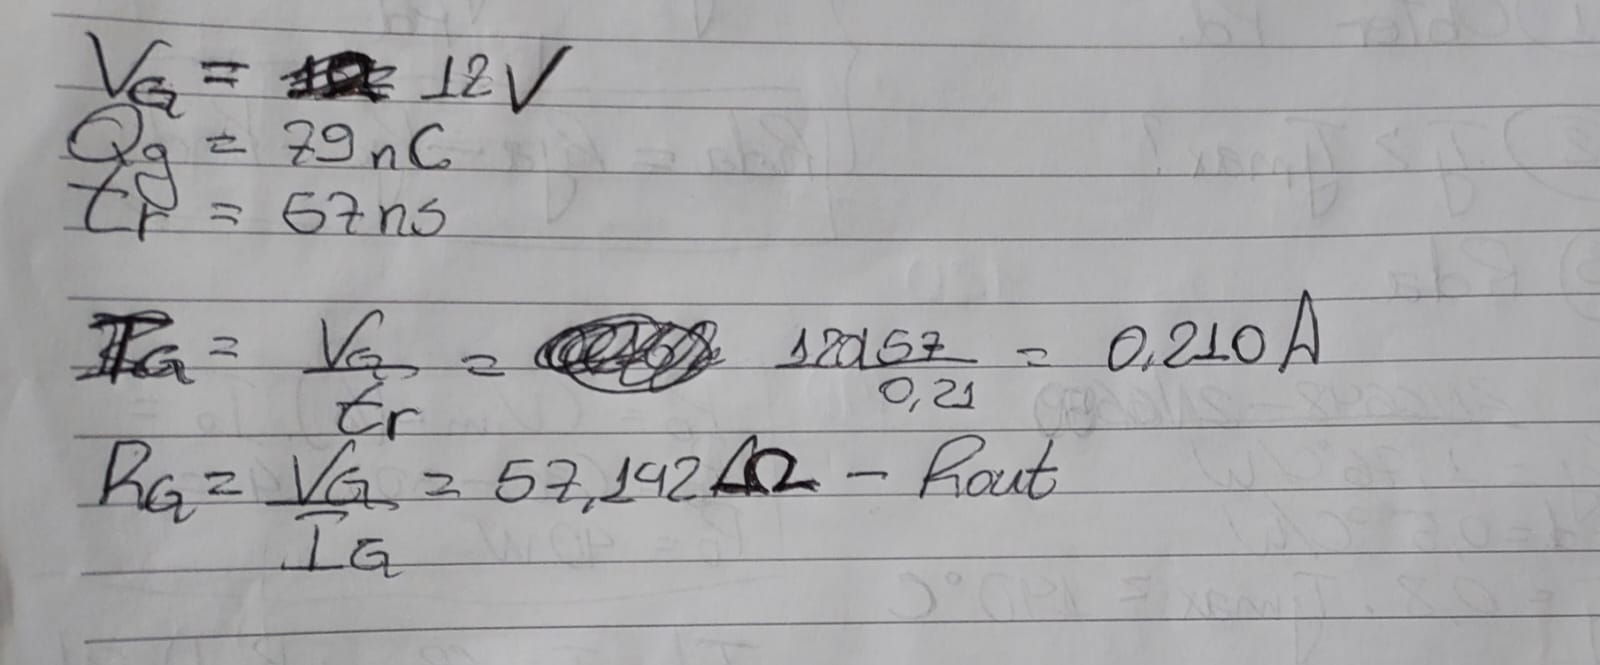 VG = 12V
Qg = 79nC
tr = 57ns
IG = VG / tr = 12/57 / 0,21 = 0,210A
RG = VG / IG = 57,142 Ω - Rout